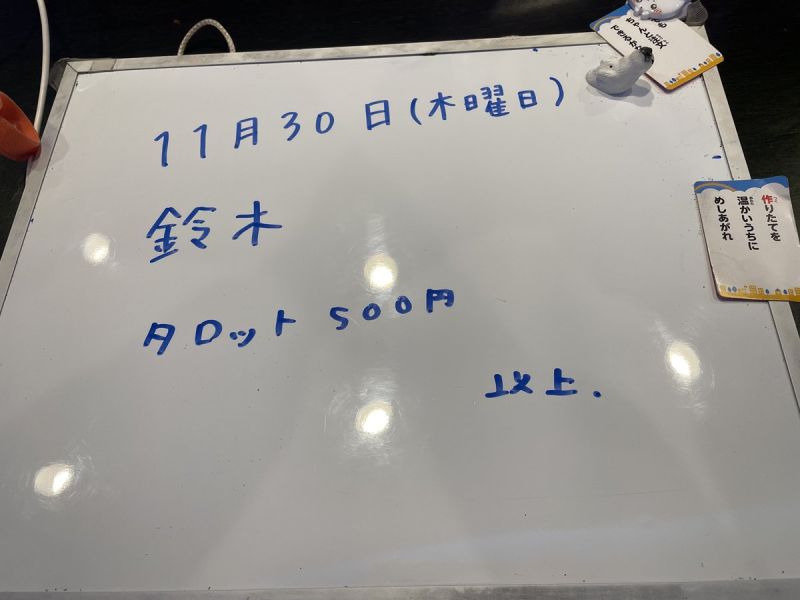 11月30日(木曜日)
鈴木
タロット 500円
以上.
作りたてを
温かいうちに
めしあがれ